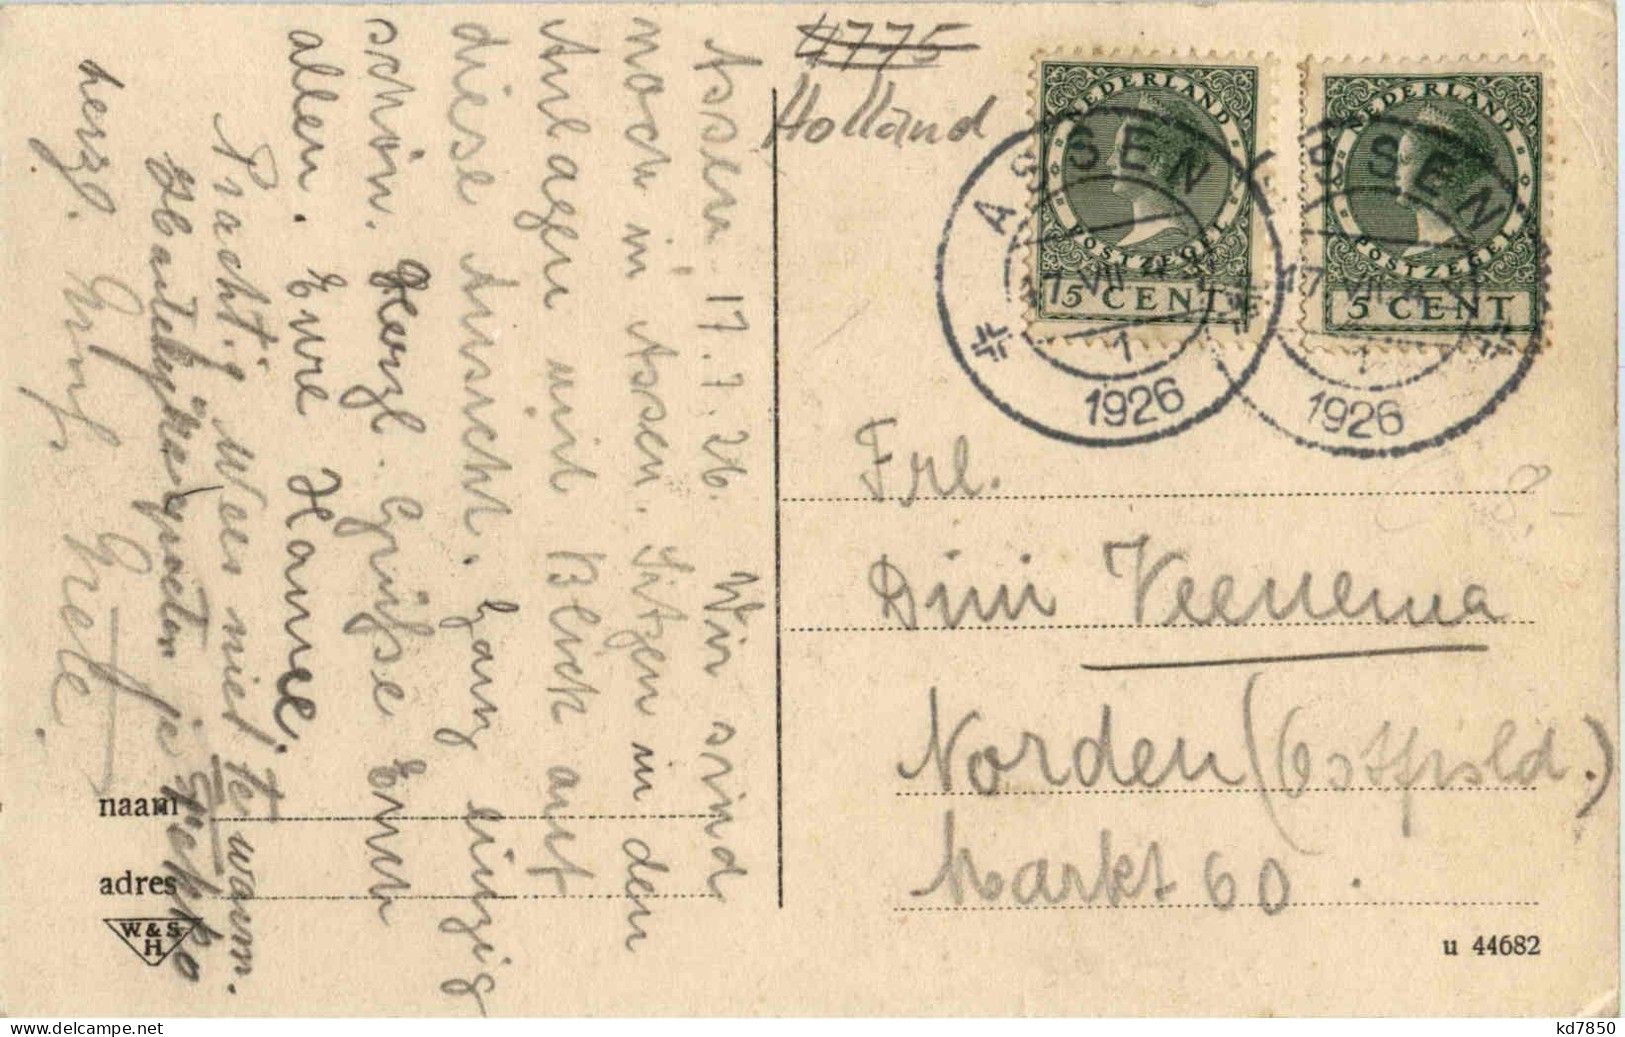 Assen 17.7.26. Wir sind
noch in Assen. Sitzen in den
Anlagen mit Blick auf
diese Ansicht. Ganz einzig
schön. Herzl. Grüße Euch
allen. Eure Hanne.
Prachtig Weer niet te warm.
Hartelijke groeten je
herzl. Gruß, Grete.
4775
Holland
NEDERLAND
POSTZEGEL
5 CENT
NEDERLAND
POSTZEGEL
5 CENT
ASSEN
17 VII
1
1926
ASSEN
17 VII
1
1926
Frl.
Dini Veenema
Norden (Ostfrsld.)
Markt 60.
naam
adres
W. & S.
H
u 44682
kd7850